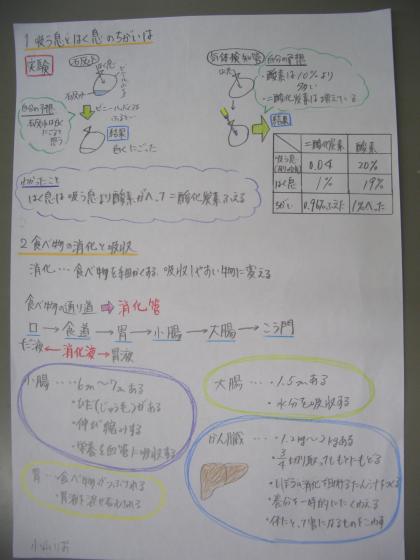 1 吸う息とはく息のちがいは
実験
石灰水
はく息
ビニールぶくろ
石灰水
自分の予想
石灰水は白く
にごると
思う
ビニールぶくろを
ふると…
結果
白くにごった
気体検知管
はく息
自分の予想
・酸素は10%より
多い
・二酸化炭素は増えている
結果
二酸化炭素 酸素
吸う息
0.04 20%
はく息 1% 19%
ちがい 0.96%ふえた 1%へった
わかったこと
はく息は吸う息より酸素がへって二酸化炭素ふえる
2 食べ物の消化と吸収
消化…食べ物を細かくする、吸収しやすい物に変える
食べ物の通り道 消化管
口 食道 胃 小腸 大腸 こう門
だ液 消化液 胃液
小腸……6m〜7mある
・ひだ(じゅうもう)がある
・伸び縮みする
・栄養を血管に吸収する
大腸……・1.5mある
・水分を吸収する
胃…・食べ物がつぶされる
・胃液を混ぜ合わされる
かん臓……・1.2kg〜2kgある
・3/4切り取ってももとにもどる
・しぼうの消化を助けるたんじゅうをつくる
・養分を一時的にたくわえる